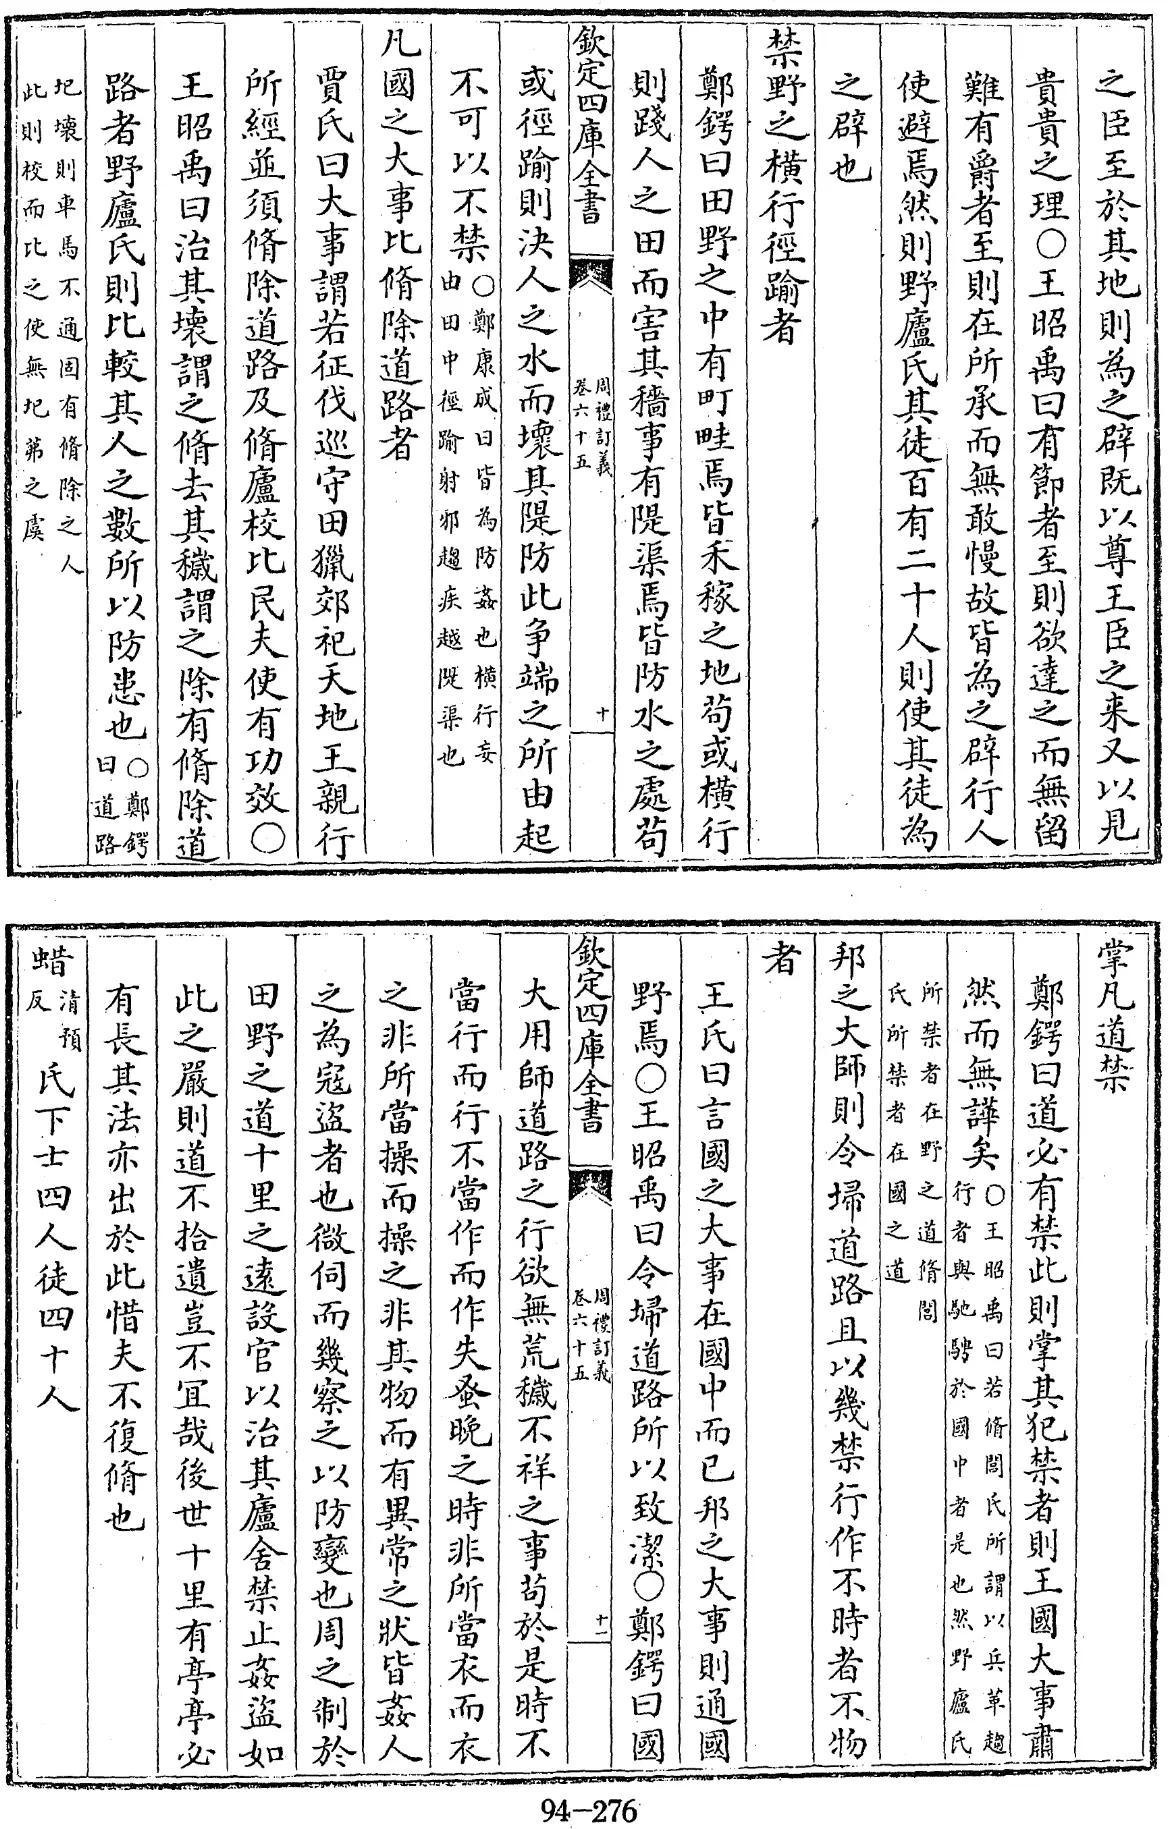 之臣至於其地則為之辟既以尊王臣之来又以見
貴貴之理〇王昭禹曰有節者至則欲達之而無留
難有爵者至則在所承而無敢慢故皆為之辟行人
使避焉然則野廬氏其徒百有二十人則使其徒為
之辟也
禁野之横行徑踰者
鄭鍔曰田野之中有町畦焉皆禾稼之地茍或横行
則踐人之田而害其穡事有隄渠焉皆防水之處茍
欽定四庫全書
周禮訂義
卷六十五
十
或徑踰則決人之水而壊其隄防此争端之所由起
不可以不禁
〇鄭康成曰皆為防姦也横行妄
由田中徑踰射邪趨疾越隄渠也
凡國之大事比脩除道路者
賈氏曰大事謂若征伐巡守田獵郊祀天地王親行
所經並須脩除道路及脩廬校比民夫使有功效〇
王昭禹曰治其壊謂之脩去其穢謂之除有脩除道
路者野廬氏則比較其人之數所以防患也
〇鄭鍔
曰道路
圮壊則車馬不通固有脩除之人
此則校而比之使無圮茀之虞
掌凡道禁
鄭鍔曰道必有禁此則掌其犯禁者則王國大事肅
然而無譁矣
〇王昭禹曰若脩閭氏所謂以兵革趨
行者與馳騁於國中者是也然野廬氏
所禁者在野之道脩閭
氏所禁者在國之道
邦之大師則令埽道路且以幾禁行作不時者不物
者
王氏曰言國之大事在國中而已邦之大事則通國
野焉〇王昭禹曰令埽道路所以致潔〇鄭鍔曰國
欽定四庫全書
周禮訂義
卷六十五
十一
大用師道路之行欲無荒穢不祥之事茍於是時不
當行而行不當作而作失蚤晚之時非所當衣而衣
之非所當操而操之非其物而有異常之狀皆姦人
之為冦盜者也微伺而幾察之以防變也周之制於
田野之道十里之遠設官以治其廬舍禁止姦盜如
此之嚴則道不拾遺豈不宜哉後世十里有亭亭必
有長其法亦出於此惜夫不復脩也
蜡
清預
反
氏下士四人徒四十人
94-276